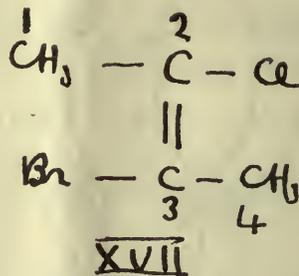 1 2
CH3 — C — Cl
||
Br — C — CH3
3 4
XVII